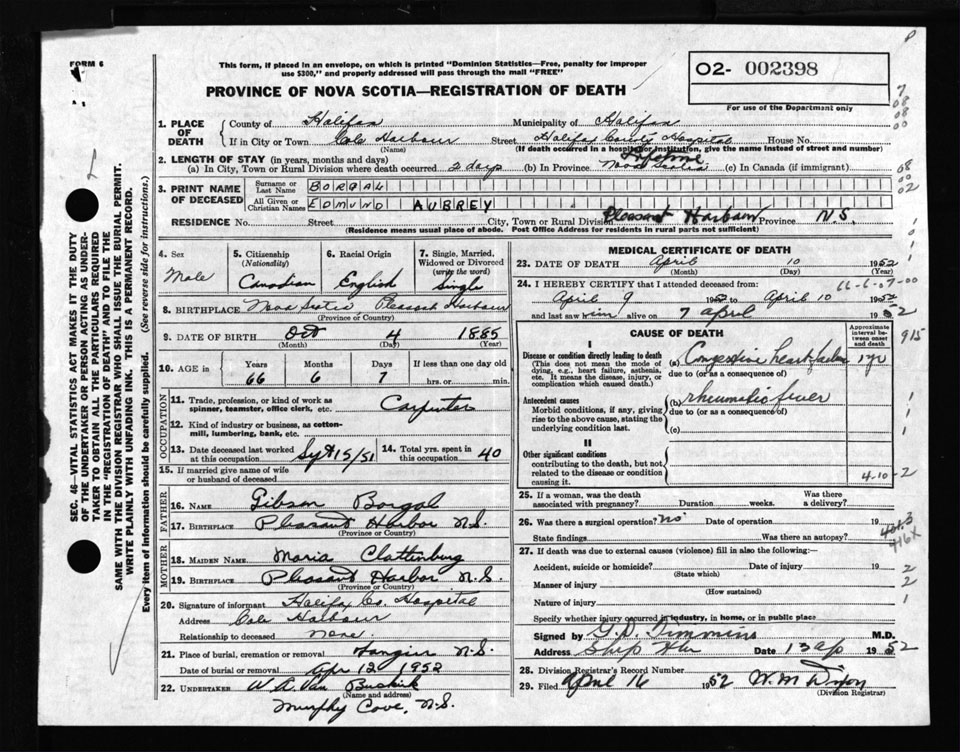 FORM 6
This form, if placed in an envelope, on which is printed "Dominion Statistics—Free, penalty for improper
use $300," and properly addressed will pass through the mail "FREE"
PROVINCE OF NOVA SCOTIA—REGISTRATION OF DEATH
O2- 002398
For use of the Department only
1. PLACE OF DEATH
County of Halifax Municipality of Halifax
If in City or Town Cole Harbour Street Halifax County Hospital House No.
(Name) (If death occurred in a hospital or institution, give the name instead of street and number)
2. LENGTH OF STAY (in years, months and days)
(a) In City, Town or Rural Division where death occurred 2 days (b) In Province Lifetime Nova Scotia (c) In Canada (if immigrant)
3. PRINT NAME OF DECEASED
Surname or Last Name BORGAL
All Given or Christian Names EDMUND AUBREY
RESIDENCE No. Street City, Town or Rural Division Pleasant Harbour Province N.S.
(Residence means usual place of abode. Post Office Address for residents in rural parts not sufficient)
4. Sex
Male
5. Citizenship (Nationality)
Canadian
6. Racial Origin
English
7. Single, Married, Widowed or Divorced (write the word)
Single
8. BIRTHPLACE Nova Scotia Pleasant Harbour
(Province or Country)
9. DATE OF BIRTH Oct 4 1885
(Month) (Day) (Year)
10. AGE IN
Years Months Days If less than one day old
66 6 7 hrs. or min.
OCCUPATION
11. Trade, profession, or kind of work as spinner, teamster, office clerk, etc. Carpenter
12. Kind of industry or business, as cotton-mill, lumbering, bank, etc.
13. Date deceased last worked at this occupation Sept 15/51
14. Total yrs. spent in this occupation 40
15. If married give name of wife or husband of deceased
FATHER
16. NAME Gibson Borgal
17. BIRTHPLACE Pleasant Harbor N.S.
(Province or Country)
MOTHER
18. MAIDEN NAME Maria Clattenburg
19. BIRTHPLACE Pleasant Harbor N.S.
(Province or Country)
20. Signature of informant Halifax Co. Hospital
Address Cole Harbour
Relationship to deceased None.
21. Place of burial, cremation or removal Tangier N.S.
Date of burial or removal Apr 12 1952
22. UNDERTAKER W. A. Van Buskirk
(Name and address)
Murphy Cove, N.S.
MEDICAL CERTIFICATE OF DEATH
23. DATE OF DEATH April 10 1952
(Month) (Day) (Year)
66-6-07-00
24. I HEREBY CERTIFY that I attended deceased from:
April 9 1952 to April 10 1952
and last saw him alive on 7 April 1952
CAUSE OF DEATH
Approximate interval between onset and death
I
Disease or condition directly leading to death
(This does not mean the mode of dying, e.g., heart failure, asthenia, etc. It means the disease, injury, or complication which caused death.)
(a) Congestive heart failure 1 yr
due to (or as a consequence of)
Antecedent causes
Morbid conditions, if any, giving rise to the above cause, stating the underlying condition last.
(b) rheumatic fever
due to (or as a consequence of)
(c)
II
Other significant conditions contributing to the death, but not related to the disease or condition causing it
4-10-2
25. If a woman, was the death associated with pregnancy? Duration weeks. Was there a delivery?
26. Was there a surgical operation? No Date of operation 19
State findings Was there an autopsy?
27. If death was due to external causes (violence) fill in also the following:—
Accident, suicide or homicide? Date of injury 19
(State which)
Manner of injury
(How sustained)
Nature of injury
Specify whether injury occurred in industry, in home, or in public place
Signed by G. D. Timmins M.D.
Address Ship Hbr Date 13 ap 1952
28. Division Registrar's Record Number
29. Filed April 16 1952 W. M. Dixon
(Division Registrar)
915
416X
SEC. 46—VITAL STATISTICS ACT MAKES IT THE DUTY
OF THE UNDERTAKER OR PERSON ACTING AS UNDER-
TAKER TO OBTAIN ALL THE PARTICULARS REQUIRED
IN THE "REGISTRATION OF DEATH" AND TO FILE THE
SAME WITH THE DIVISION REGISTRAR WHO SHALL ISSUE THE BURIAL PERMIT.
WRITE PLAINLY WITH UNFADING INK. THIS IS A PERMANENT RECORD.
Every item of information should be carefully supplied. (See reverse side for instructions.)